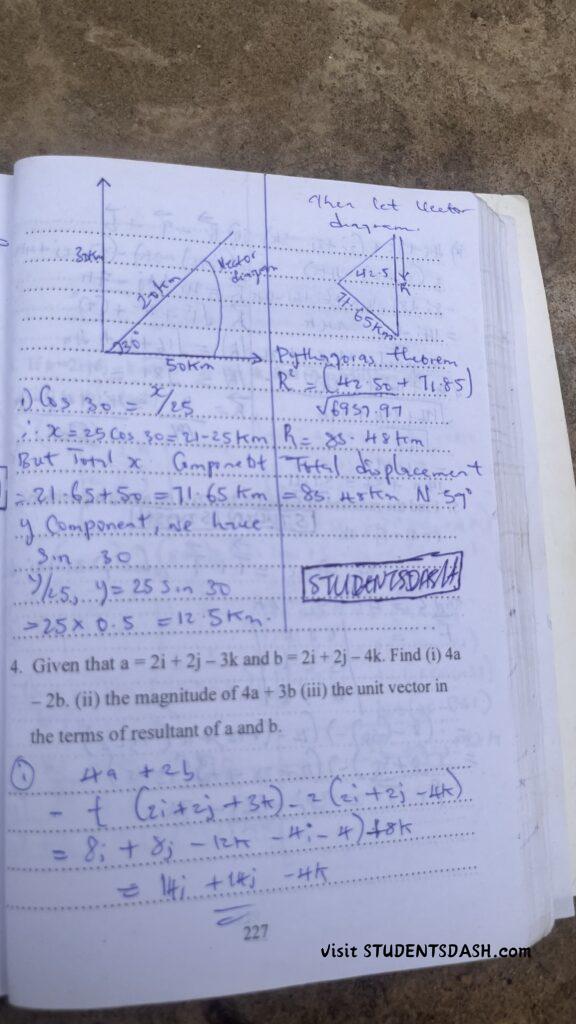 30km
20km
Vector
diagram
30°
50km
i) Cos 30 = x/25
∴ x = 25 Cos 30 = 21-25 km
But Total x Component
= 21.65 + 50 = 71.65 km
y Component, we have
Sin 30
y/25, y = 25 Sin 30
= 25 x 0.5 = 12.5 km.
Then let Vector
diagram.
42.5
R
71.65km
Pythagoras theorem
R² = (42.50 + 71.85)
√6937.97
R = 83.48km
Total displacement
= 83.48km N 59°
STUDENTSDASH
4. Given that a = 2i + 2j – 3k and b = 2i + 2j – 4k. Find (i) 4a
– 2b. (ii) the magnitude of 4a + 3b (iii) the unit vector in
the terms of resultant of a and b.
(i) 4a + 2b
(2i + 2j + 3k) - 2 (2i + 2j - 4k)
= 8i + 8j - 12k - 4i - 4) + 8k
= 14i + 14j - 4k
227
visit STUDENTSDASH.com